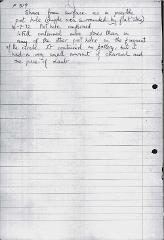 P 319
Shows from surface as a possible
post hole (angle area surrounded by flat stones)
16-7-72 Post hole confirmed
Fill contained more stones than in
many of the other post holes in the segment
of the circle. It contained no pottery, but it
had a very small amount of charcoal and
one piece of daub.